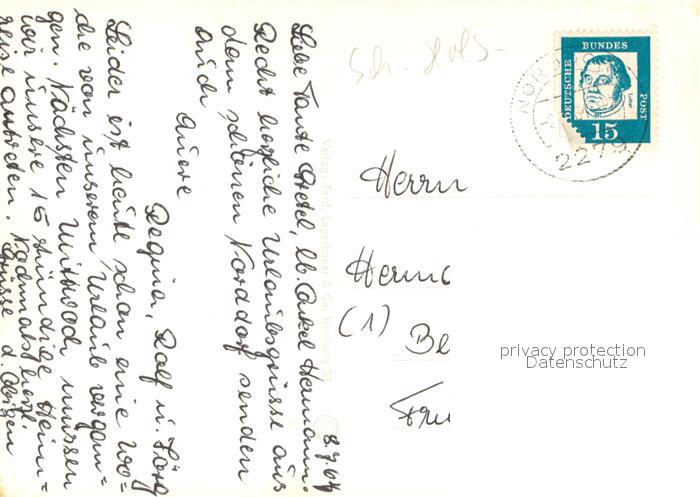 8.7.64
Liebe Tante Gretel, lb. Onkel Hermann.
Recht herzliche Urlaubsgrüsse aus
dem schönen Norddorf senden
Auch
Euere
Regina, Rolf u. Jörg
Leider ist heute schon eine Wo=
che von unserem Urlaub vergan=
gen. Nächsten Mittwoch müssen
wir unsere 15 stündige Heim=
reise antreten. Nochmals herzl.
Grüsse d. Obigen
Verlag: Ferd. Lagerbauer & Co. Hamburg 33
Sch. Hols-
DEUTSCHE
BUNDES
POST
Luther
15
NORDDORF
2279
Herrn
Herm
(1) Be
Fra
privacy protection
Datenschutz